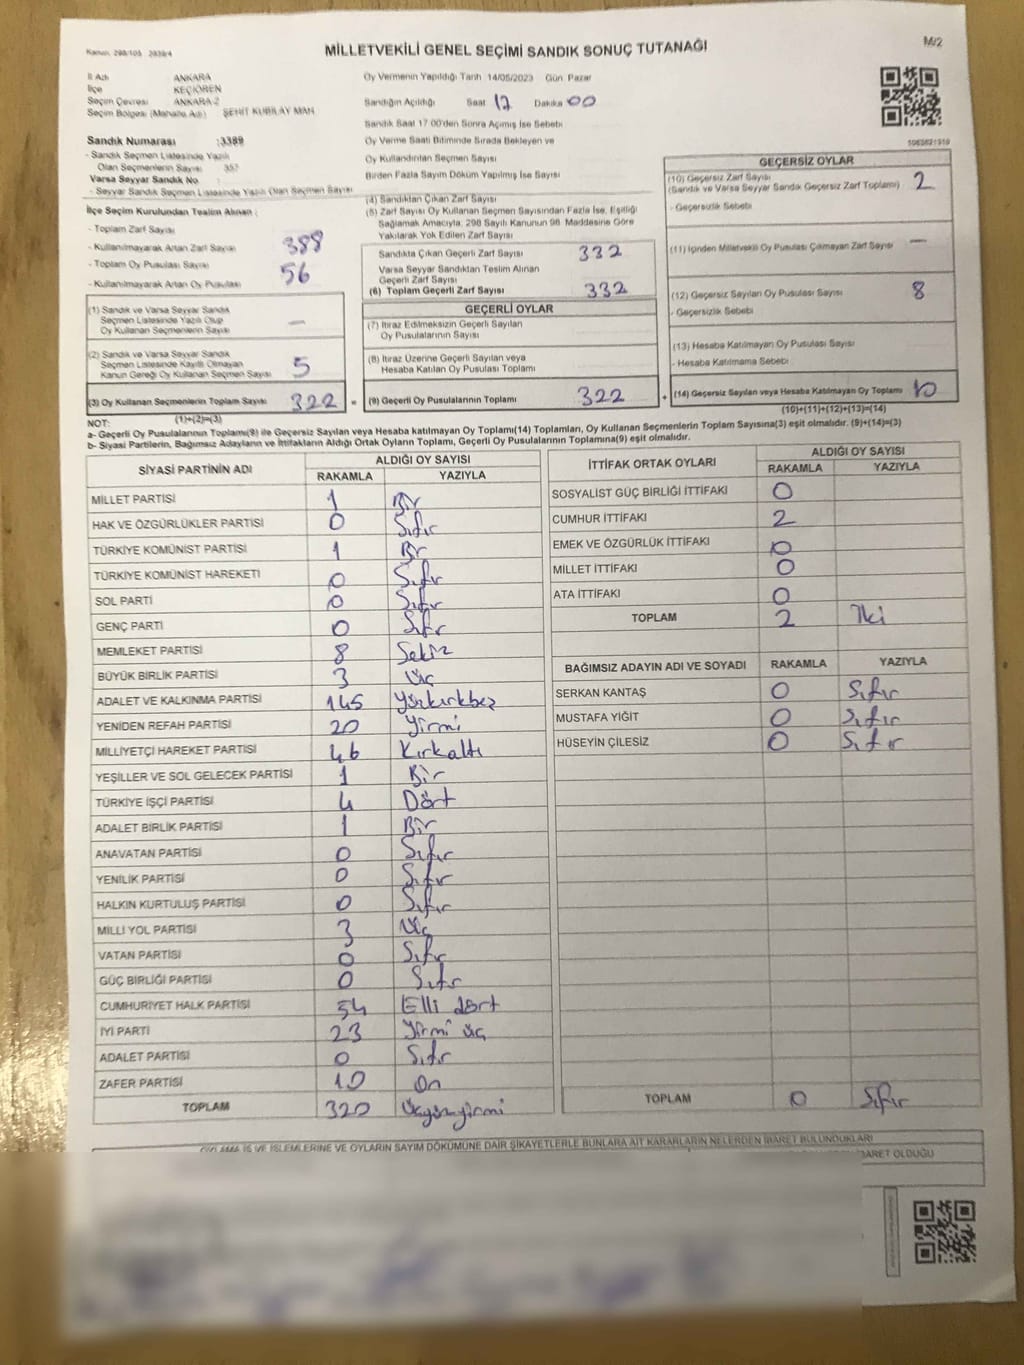 Kanun: 298/105 2839/4
MİLLETVEKİLİ GENEL SEÇİMİ SANDIK SONUÇ TUTANAĞI
M/2
İl Adı ANKARA
İlçe KEÇİÖREN
Seçim Çevresi ANKARA-2
Seçim Bölgesi (Mahalle Adı) ŞEHİT KUBİLAY MAH
Oy Vermenin Yapıldığı Tarih 14/05/2023 Gün Pazar
Sandığın Açıldığı Saat 17 Dakika 00
Sandık Saat 17:00'den Sonra Açmış İse Sebebi
Oy Verme Saati Bitiminde Sırada Bekleyen ve
Oy Kullandırılan Seçmen Sayısı
Birden Fazla Sayım Döküm Yapılmış İse Sayısı
Sandık Numarası :3389
- Sandık Seçmen Listesinde Yazılı
Olan Seçmenlerin Sayısı
Varsa Seyyar Sandık No
- Seyyar Sandık Seçmen Listesinde Yazılı Olan Seçmen Sayısı
İlçe Seçim Kurulundan Teslim Alınan :
- Toplam Zarf Sayısı
- Kullanılmayarak Artan Zarf Sayısı 388
- Toplam Oy Pusulası Sayısı 56
- Kullanılmayarak Artan Oy Pusulası
(1) Sandık ve Varsa Seyyar Sandık
Seçmen Listesinde Yazılı Olup
Oy Kullanan Seçmenlerin Sayısı —
(2) Sandık ve Varsa Seyyar Sandık
Seçmen Listesinde Kayıtlı Olmayan
Kanun Gereği Oy Kullanan Seçmen Sayısı 5
(3) Oy Kullanan Seçmenlerin Toplam Sayısı 322 =
(1)+(2)=(3)
(4) Sandıktan Çıkan Zarf Sayısı
(5) Zarf Sayısı Oy Kullanan Seçmen Sayısından Fazla İse, Eşitliği
Sağlamak Amacıyla, 298 Sayılı Kanunun 98. Maddesine Göre
Yakılarak Yok Edilen Zarf Sayısı
Sandıkta Çıkan Geçerli Zarf Sayısı 332
Varsa Seyyar Sandıktan Teslim Alınan
Geçerli Zarf Sayısı
(6) Toplam Geçerli Zarf Sayısı 332
GEÇERLİ OYLAR
(7) İtiraz Edilmeksizin Geçerli Sayılan
Oy Pusulalarının Sayısı
(8) İtiraz Üzerine Geçerli Sayılan veya
Hesaba Katılan Oy Pusulası Toplamı
(9) Geçerli Oy Pusulalarının Toplamı 322 +
GEÇERSİZ OYLAR
(10) Geçersiz Zarf Sayısı 2
(Sandık ve Varsa Seyyar Sandık Geçersiz Zarf Toplamı)
- Geçersizlik Sebebi
(11) İçinden Milletvekili Oy Pusulası Çıkmayan Zarf Sayısı —
(12) Geçersiz Sayılan Oy Pusulası Sayısı 8
- Geçersizlik Sebebi
(13) Hesaba Katılmayan Oy Pusulası Sayısı
- Hesaba Katılmama Sebebi
(14) Geçersiz Sayılan veya Hesaba Katılmayan Oy Toplamı 10
(10)+(11)+(12)+(13)=(14)
NOT:
a- Geçerli Oy Pusulalarının Toplamı(9) ile Geçersiz Sayılan veya Hesaba katılmayan Oy Toplamı(14) Toplamları, Oy Kullanan Seçmenlerin Toplam Sayısına(3) eşit olmalıdır. (9)+(14)=(3)
b- Siyasi Partilerin, Bağımsız Adayların ve İttifakların Aldığı Ortak Oyların Toplamı, Geçerli Oy Pusulalarının Toplamına(9) eşit olmalıdır.
SİYASİ PARTİNİN ADI ALDIĞI OY SAYISI
RAKAMLA YAZIYLA
MİLLET PARTİSİ 1 Bir
HAK VE ÖZGÜRLÜKLER PARTİSİ 0 Sıfır
TÜRKİYE KOMÜNİST PARTİSİ 1 Bir
TÜRKİYE KOMÜNİST HAREKETİ 0 Sıfır
SOL PARTİ 0 Sıfır
GENÇ PARTİ 0 Sıfır
MEMLEKET PARTİSİ 8 Sekiz
BÜYÜK BİRLİK PARTİSİ 3 Üç
ADALET VE KALKINMA PARTİSİ 145 Yüzkırkbeş
YENİDEN REFAH PARTİSİ 20 Yirmi
MİLLİYETÇİ HAREKET PARTİSİ 46 Kırkaltı
YEŞİLLER VE SOL GELECEK PARTİSİ 1 Bir
TÜRKİYE İŞÇİ PARTİSİ 4 Dört
ADALET BİRLİK PARTİSİ 1 Bir
ANAVATAN PARTİSİ 0 Sıfır
YENİLİK PARTİSİ 0 Sıfır
HALKIN KURTULUŞ PARTİSİ 0 Sıfır
MİLLİ YOL PARTİSİ 3 Üç
VATAN PARTİSİ 0 Sıfır
GÜÇ BİRLİĞİ PARTİSİ 0 Sıfır
CUMHURİYET HALK PARTİSİ 54 Elli dört
İYİ PARTİ 23 Yirmi üç
ADALET PARTİSİ 0 Sıfır
ZAFER PARTİSİ 10 On
TOPLAM 320 Üçyüzyirmi
İTTİFAK ORTAK OYLARI ALDIĞI OY SAYISI
RAKAMLA YAZIYLA
SOSYALİST GÜÇ BİRLİĞİ İTTİFAKI 0
CUMHUR İTTİFAKI 2
EMEK VE ÖZGÜRLÜK İTTİFAKI 0
MİLLET İTTİFAKI 0
ATA İTTİFAKI 0
TOPLAM 2 İki
BAĞIMSIZ ADAYIN ADI VE SOYADI RAKAMLA YAZIYLA
SERKAN KANTAŞ 0 Sıfır
MUSTAFA YİĞİT 0 Sıfır
HÜSEYİN ÇİLESİZ 0 Sıfır
TOPLAM 0 Sıfır
İŞ VE İŞLEMLERİNE VE OYLARIN SAYIM DÖKÜMÜNE DAİR ŞİKAYETLERLE BUNLARA AİT KARARLARIN NELERDEN İBARET BULUNDUKLARI
OLDUĞU